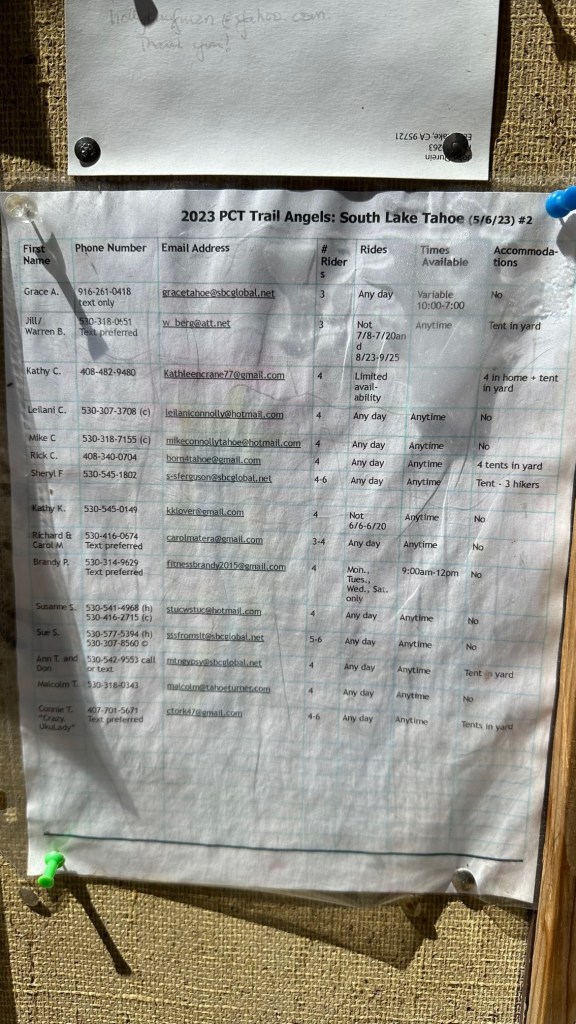 Thank you!
2023 PCT Trail Angels: South Lake Tahoe (5/6/23) #2
First Name Phone Number Email Address # Riders Rides Times Available Accommoda-tions
Grace A. 916-261-0418 text only gracetahoe@sbcglobal.net 3 Any day Variable 10:00-7:00 No
Jill/ Warren B. 530-318-0651 Text preferred w_berg@att.net 3 Not 7/8-7/20and 8/23-9/25 Anytime Tent in yard
Kathy C. 408-482-9480 Kathleencrane77@gmail.com 4 Limited avail-ability 4 in home + tent in yard
Leilani C. 530-307-3708 (c) leilaniconnolly@hotmail.com 4 Any day Anytime No
Mike C 530-318-7155 (c) mikeconnollytahoe@hotmail.com 4 Any day Anytime No
Rick C. 408-340-0704 born4tahoe@gmail.com 4 Any day Anytime 4 tents in yard
Sheryl F 530-545-1802 s-sferguson@sbcglobal.net 4-6 Any day Anytime Tent - 3 hikers
Kathy K. 530-545-0149 kklover@gmail.com 4 Not 6/6-6/20 Anytime No
Richard & Carol M 530-416-0674 Text preferred carolmatera@gmail.com 3-4 Any day Anytime No
Brandy P. 530-314-9629 Text preferred fitnessbrandy2015@gmail.com 4 Mon., Tues., Wed., Sat. only 9:00am-12pm No
Susanne S. 530-541-4968 (h) 530-416-2715 (c) stucwstuc@hotmail.com 4 Any day Anytime No
Sue S. 530-577-5394 (h) 530-307-8560 © sssfromslt@sbcglobal.net 5-6 Any day Anytime No
Ann T. and Don 530-542-9553 call or text mtngypsy@sbcglobal.net 4 Any day Anytime Tent in yard
Malcolm T. 530-318-0343 malcolm@tahoeturner.com 4 Any day Anytime No
Connie T. "Crazy UkuLady" 407-701-5671 Text preferred ctork47@gmail.com 4-6 Any day Anytime Tents in yard